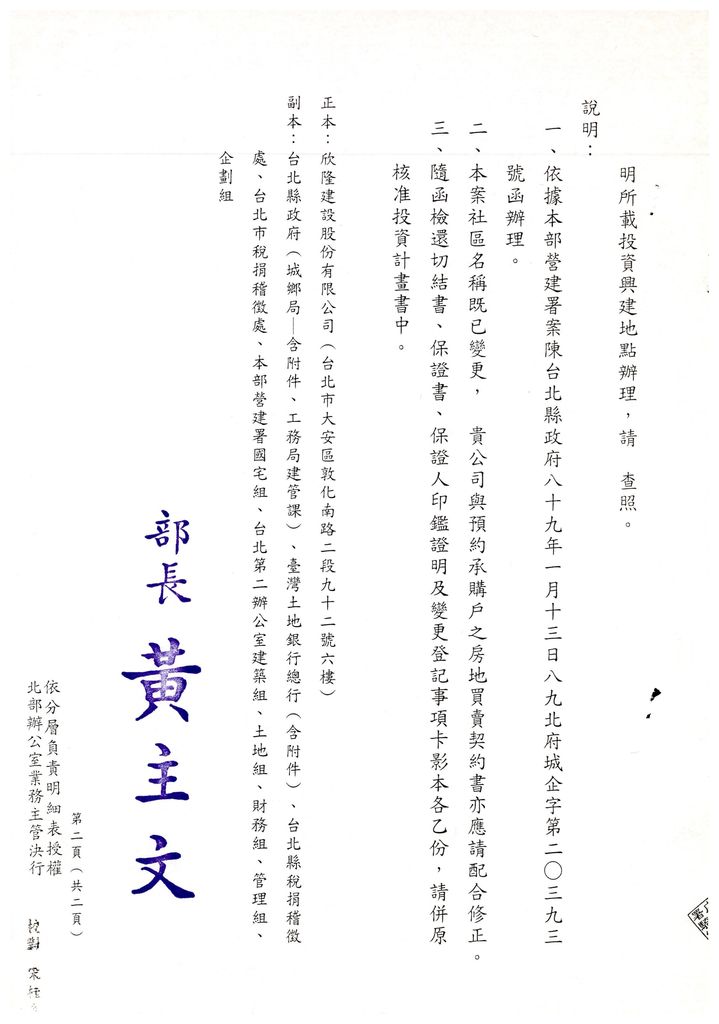 明所載投資興建地點辦理，請　查照。
說明：
一、依據本部營建署案陳台北縣政府八十九年一月十三日八九北府城企字第二〇三九三
號函辦理。
二、本案社區名稱既已變更，　貴公司與預約承購戶之房地買賣契約書亦應請配合修正。
三、隨函檢還切結書、保證書、保證人印鑑證明及變更登記事項卡影本各乙份，請併原
核准投資計畫書中。
正本：欣隆建設股份有限公司（台北市大安區敦化南路二段九十二號六樓）
副本：台北縣政府（城鄉局—含附件、工務局建管課）、臺灣土地銀行總行（含附件）、台北縣稅捐稽徵
處、台北市稅捐稽徵處、本部營建署國宅組、台北第二辦公室建築組、土地組、財務組、管理組、
企劃組
部長 黃主文
第二頁（共二頁）
依分層負責明細表授權
北部辦公室業務主管決行
校對